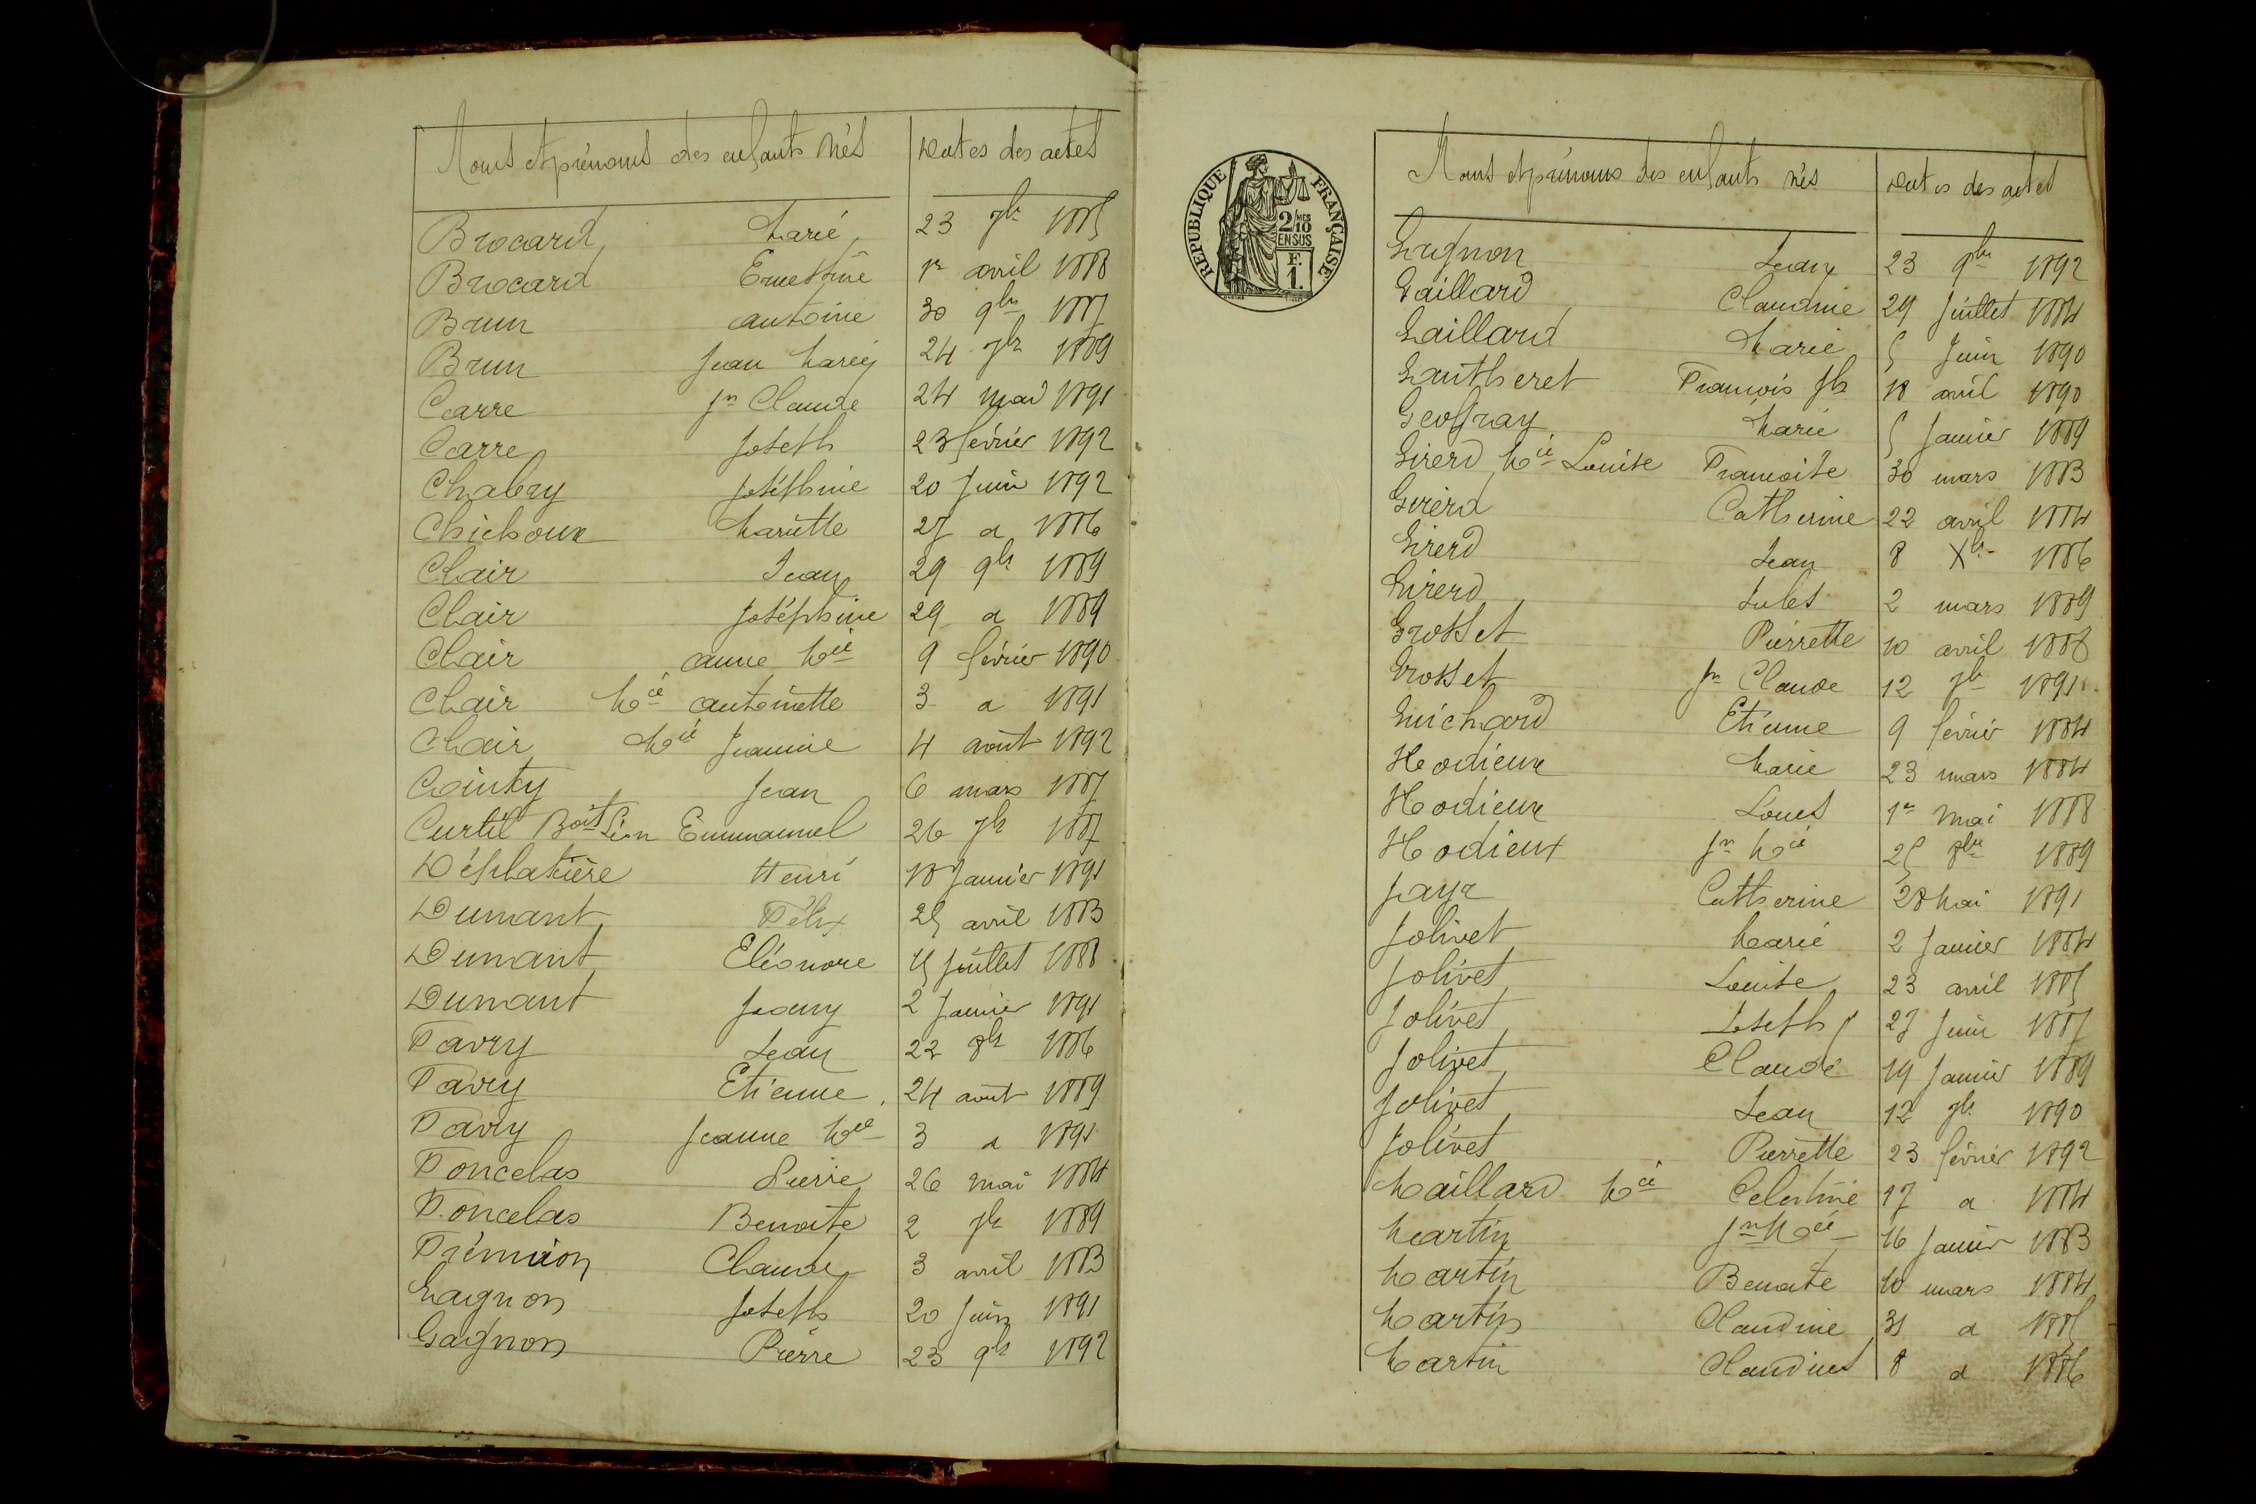 Noms et prénoms des enfants nés Dates des actes
Brocard Marie 23 7bre 1885
Brocard Ernestine 1er avril 1888
Brun antoine 30 9bre 1887
Brun Jean Marie 24 7bre 1889
Carre Jn Claude 24 mai 1891
Carre Joseph 23 février 1892
Chabry Joséphine 20 Juin 1892
Chichoux Mariette 27 d 1886
Clair Jean 29 9bre 1889
Clair Joséphine 29 d 1889
Clair anne Mie 9 février 1890
Clair Mie antoinette 3 d 1891
Clair Mie Jeanne 4 août 1892
Cointy Jean 6 mars 1887
Curtil Boit Léon Emmanuel 26 7bre 1887
Déplatière Henri 18 Janvier 1891
Dumant Félix 25 avril 1883
Dumant Eléonore 15 Juillet 1888
Dumant Joany 2 Janvier 1891
Favry Jean 22 8bre 1886
Favry Etienne 24 août 1889
Favry Jeanne Mie 3 d 1891
Foncelas Pierre 26 mai 1884
Foncelas Benoite 2 7bre 1889
Frémion Claude 3 avril 1883
Gagnon Joseph 20 Juin 1891
Gagnon Pierre 23 9bre 1892
RÉPUBLIQUE FRANÇAISE
2/10 MES
EN SUS
F.
1.
Noms et prénoms des enfants nés Dates des actes
Gagnon Jean 23 9bre 1892
Gaillard Claudine 29 Juillet 1884
Gaillard Marie 5 Juin 1890
Gautheret François Jh 18 avril 1890
Geoffray Marie 5 Janvier 1889
Girerd Mie Louise Françoise 30 mars 1883
Girerd Catherine 22 avril 1884
Girerd Jean 8 Xbre 1886
Girerd Jules 2 mars 1889
Grosset Pierrette 10 avril 1888
Grosset Jn Claude 12 7bre 1891
Guichard Etienne 9 février 1884
Hodieux Marie 23 mars 1884
Hodieux Louis 1er mai 1888
Hodieux Jn Mie 25 8bre 1889
Jayr Catherine 28 Mai 1891
Jolivet Marie 2 Janvier 1884
Jolivet Louise 23 avril 1885
Jolivet Joseph 27 Juin 1887
Jolivet Claude 19 Janvier 1889
Jolivet Jean 12 7bre 1890
Jolivet Pierrette 23 février 1892
Maillard Mie Celestine 17 d 1884
Martin Jn Mie 16 Janvier 1883
Martin Benoite 10 mars 1884
Martin Claudine 31 d 1885
Martin Claudius 8 d 1886